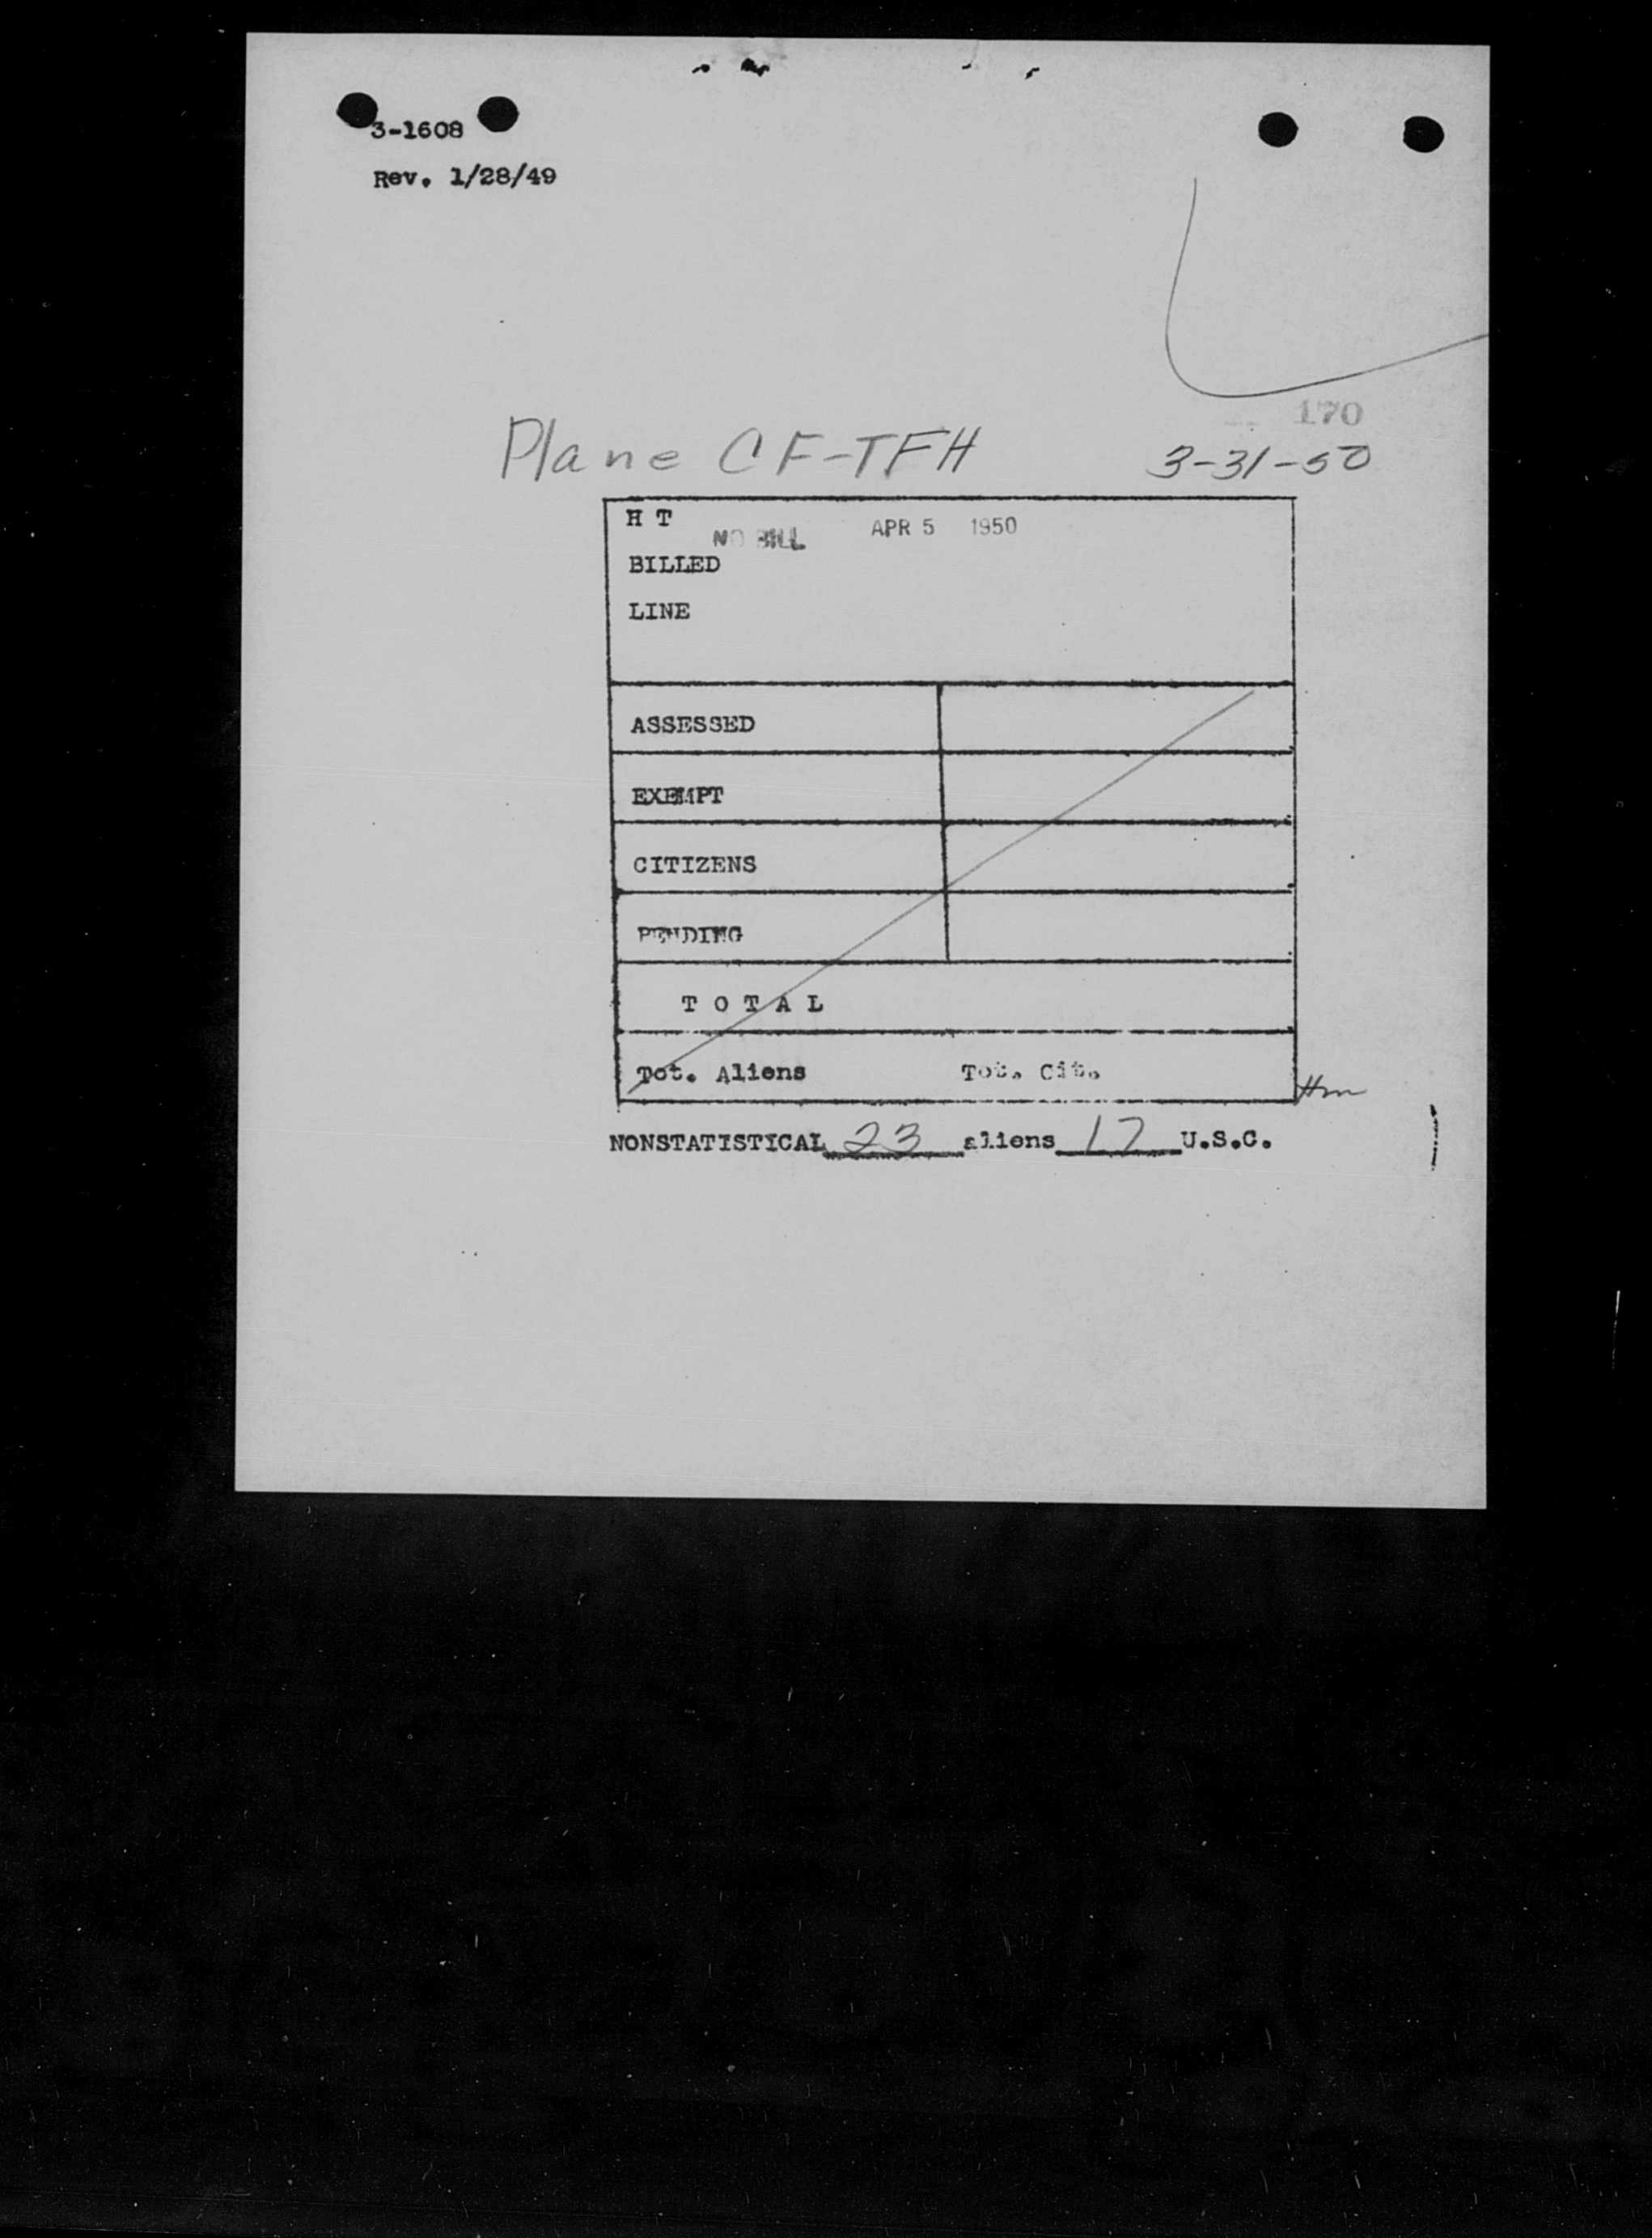 3-1608
Rev. 1/28/49
170
Plane CF-TFH 3-31-50
H T
NO BILL APR 5 1950
BILLED
LINE
ASSESSED
EXEMPT
CITIZENS
PENDING
T O T A L
Tot. Aliens Tot. Cit.
NONSTATISTICAL 23 aliens 17 U.S.C.